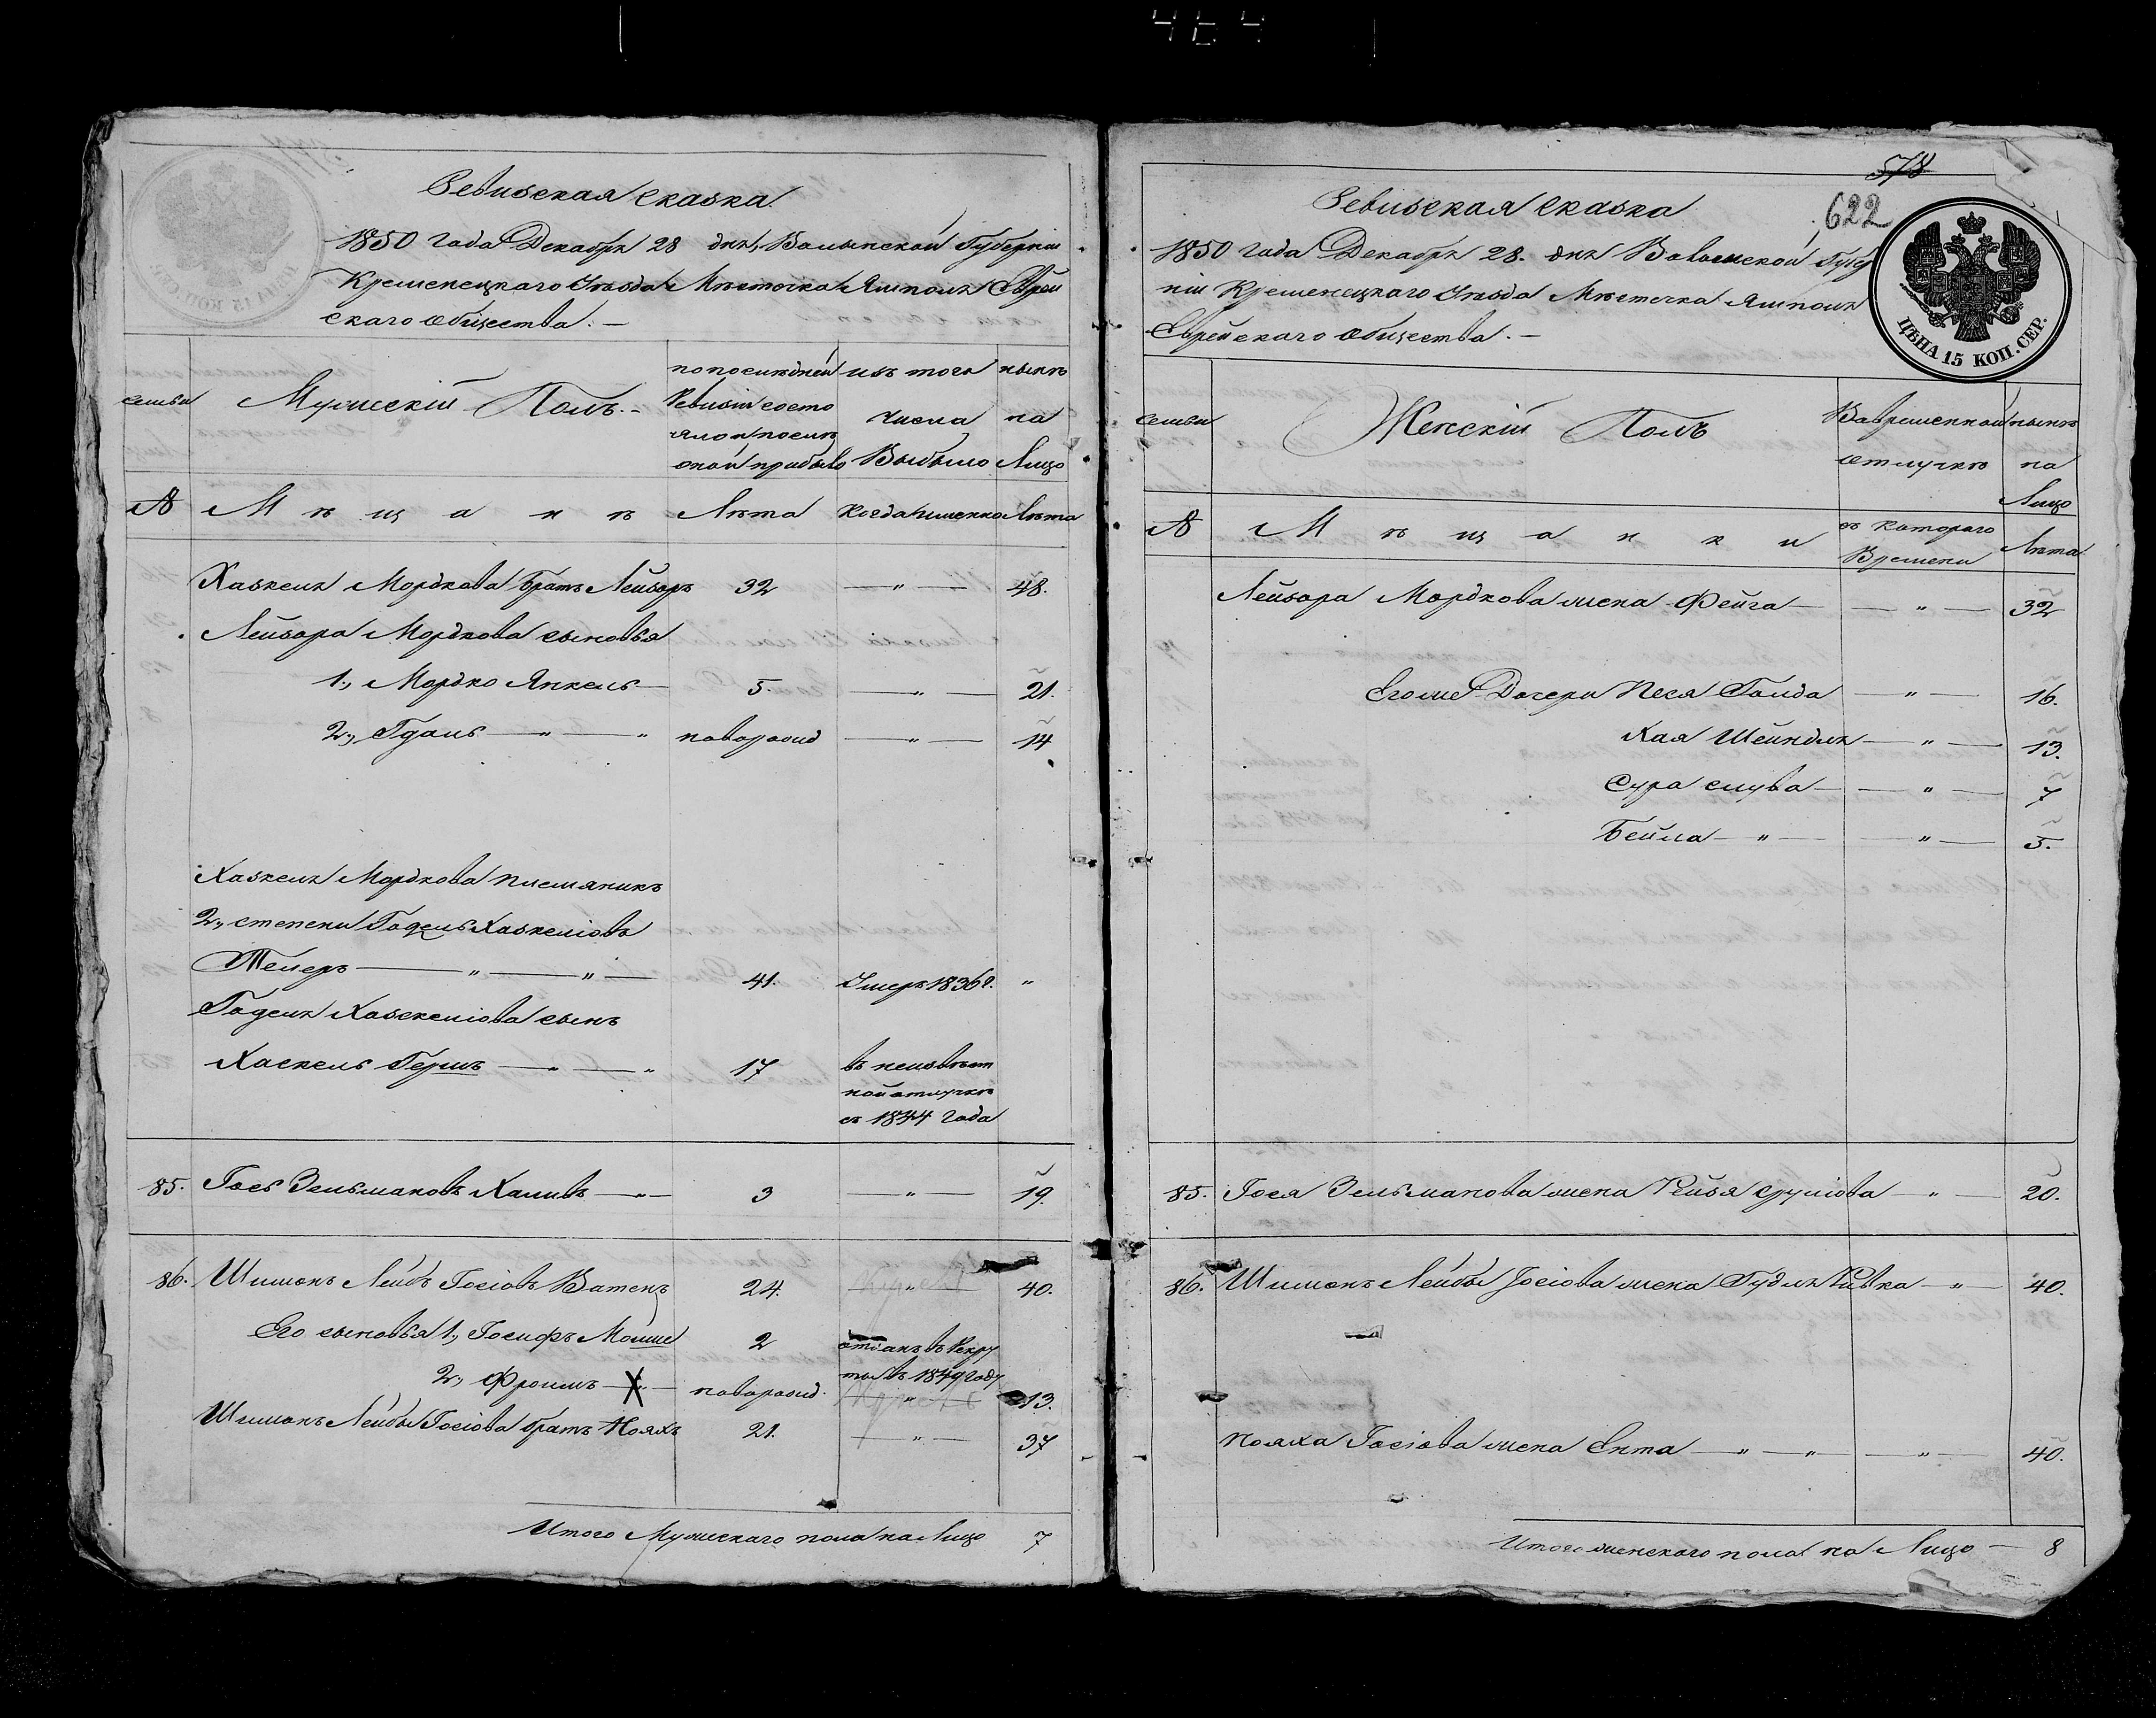 Ревизская сказка.
1850 года Декабря 28 дня, Волынской Губерніи
Кременецкаго Уезда Местечка Ямполя Еврей
скаго Общества. —
семьи
Мужескій Полъ. —
по последней
Ревизіи состо
яло и после
оной прибыло
изъ того
числа
Выбыло
ныне
на
Лицо
№ М ѣ щ а н ѣ Лѣта Когда Именно Лѣта
Хаскеля Мордкова братъ Лейзоръ 32 — " — 48.
Лейзора Мордкова сыновья
1., Мордко Янкель — 5. — " — 21.
2., Гдаль — " — " новорожд — " — 14
Хаскеля Мордкова племяникъ
2., степени Годель Хаскеліовъ
Тейеръ — " — " — 41. Умеръ 1836 г. "
Годеля Хаскеліова сынъ
Хаскель Гершъ — " — " 17 въ неизвѣст
ной отлучкѣ
съ 1844 года
85. Іось Зельмановъ Халивъ — " — 3 — " — 19.
86. Шимонъ Лейбъ Іосіовъ Ватенъ 24. — " — 40.
Его сыновья 1., Іосифъ Мошие 2 отданъ въ Рекру
ты въ 1849 году
2., Фроимъ — " — новорожд. — " — 13.
Шимонъ Лейбы Іосіова братъ Нояхъ 21. — " — 37
Итого Мужескаго пола на Лицо 7
464
578
622
Ревизская сказка
1850 года Декабря 28. дня Волынской Губер
ніи Кременецкаго Уезда Местечка Ямполя
Еврейскаго Общества. —
ЦѢНА 15 КОП. СЕР.
семьи
Женскій Полъ
Во временной
отлучкѣ
ныне
на
Лицо
№ М ѣ щ а н к и
съ котораго
Времени
Лѣта
Лейзора Мордкова жена Фейга — — " — 32
Его же Дочери Песя Голда — " — 16.
Хая Шейндля — " — 13.
Сура слува — — " — 7
Бейла — " — — " — 5.
85. Іося Зельманова жена Рейзя Сруліова — " — 20.
86. Шимонъ Лейбы Іосіова жена Гудля Ривка — " — 40.
Нояха Іосіова жена Ента — " — " — " — 40.
Итого женскаго пола на Лицо — 8